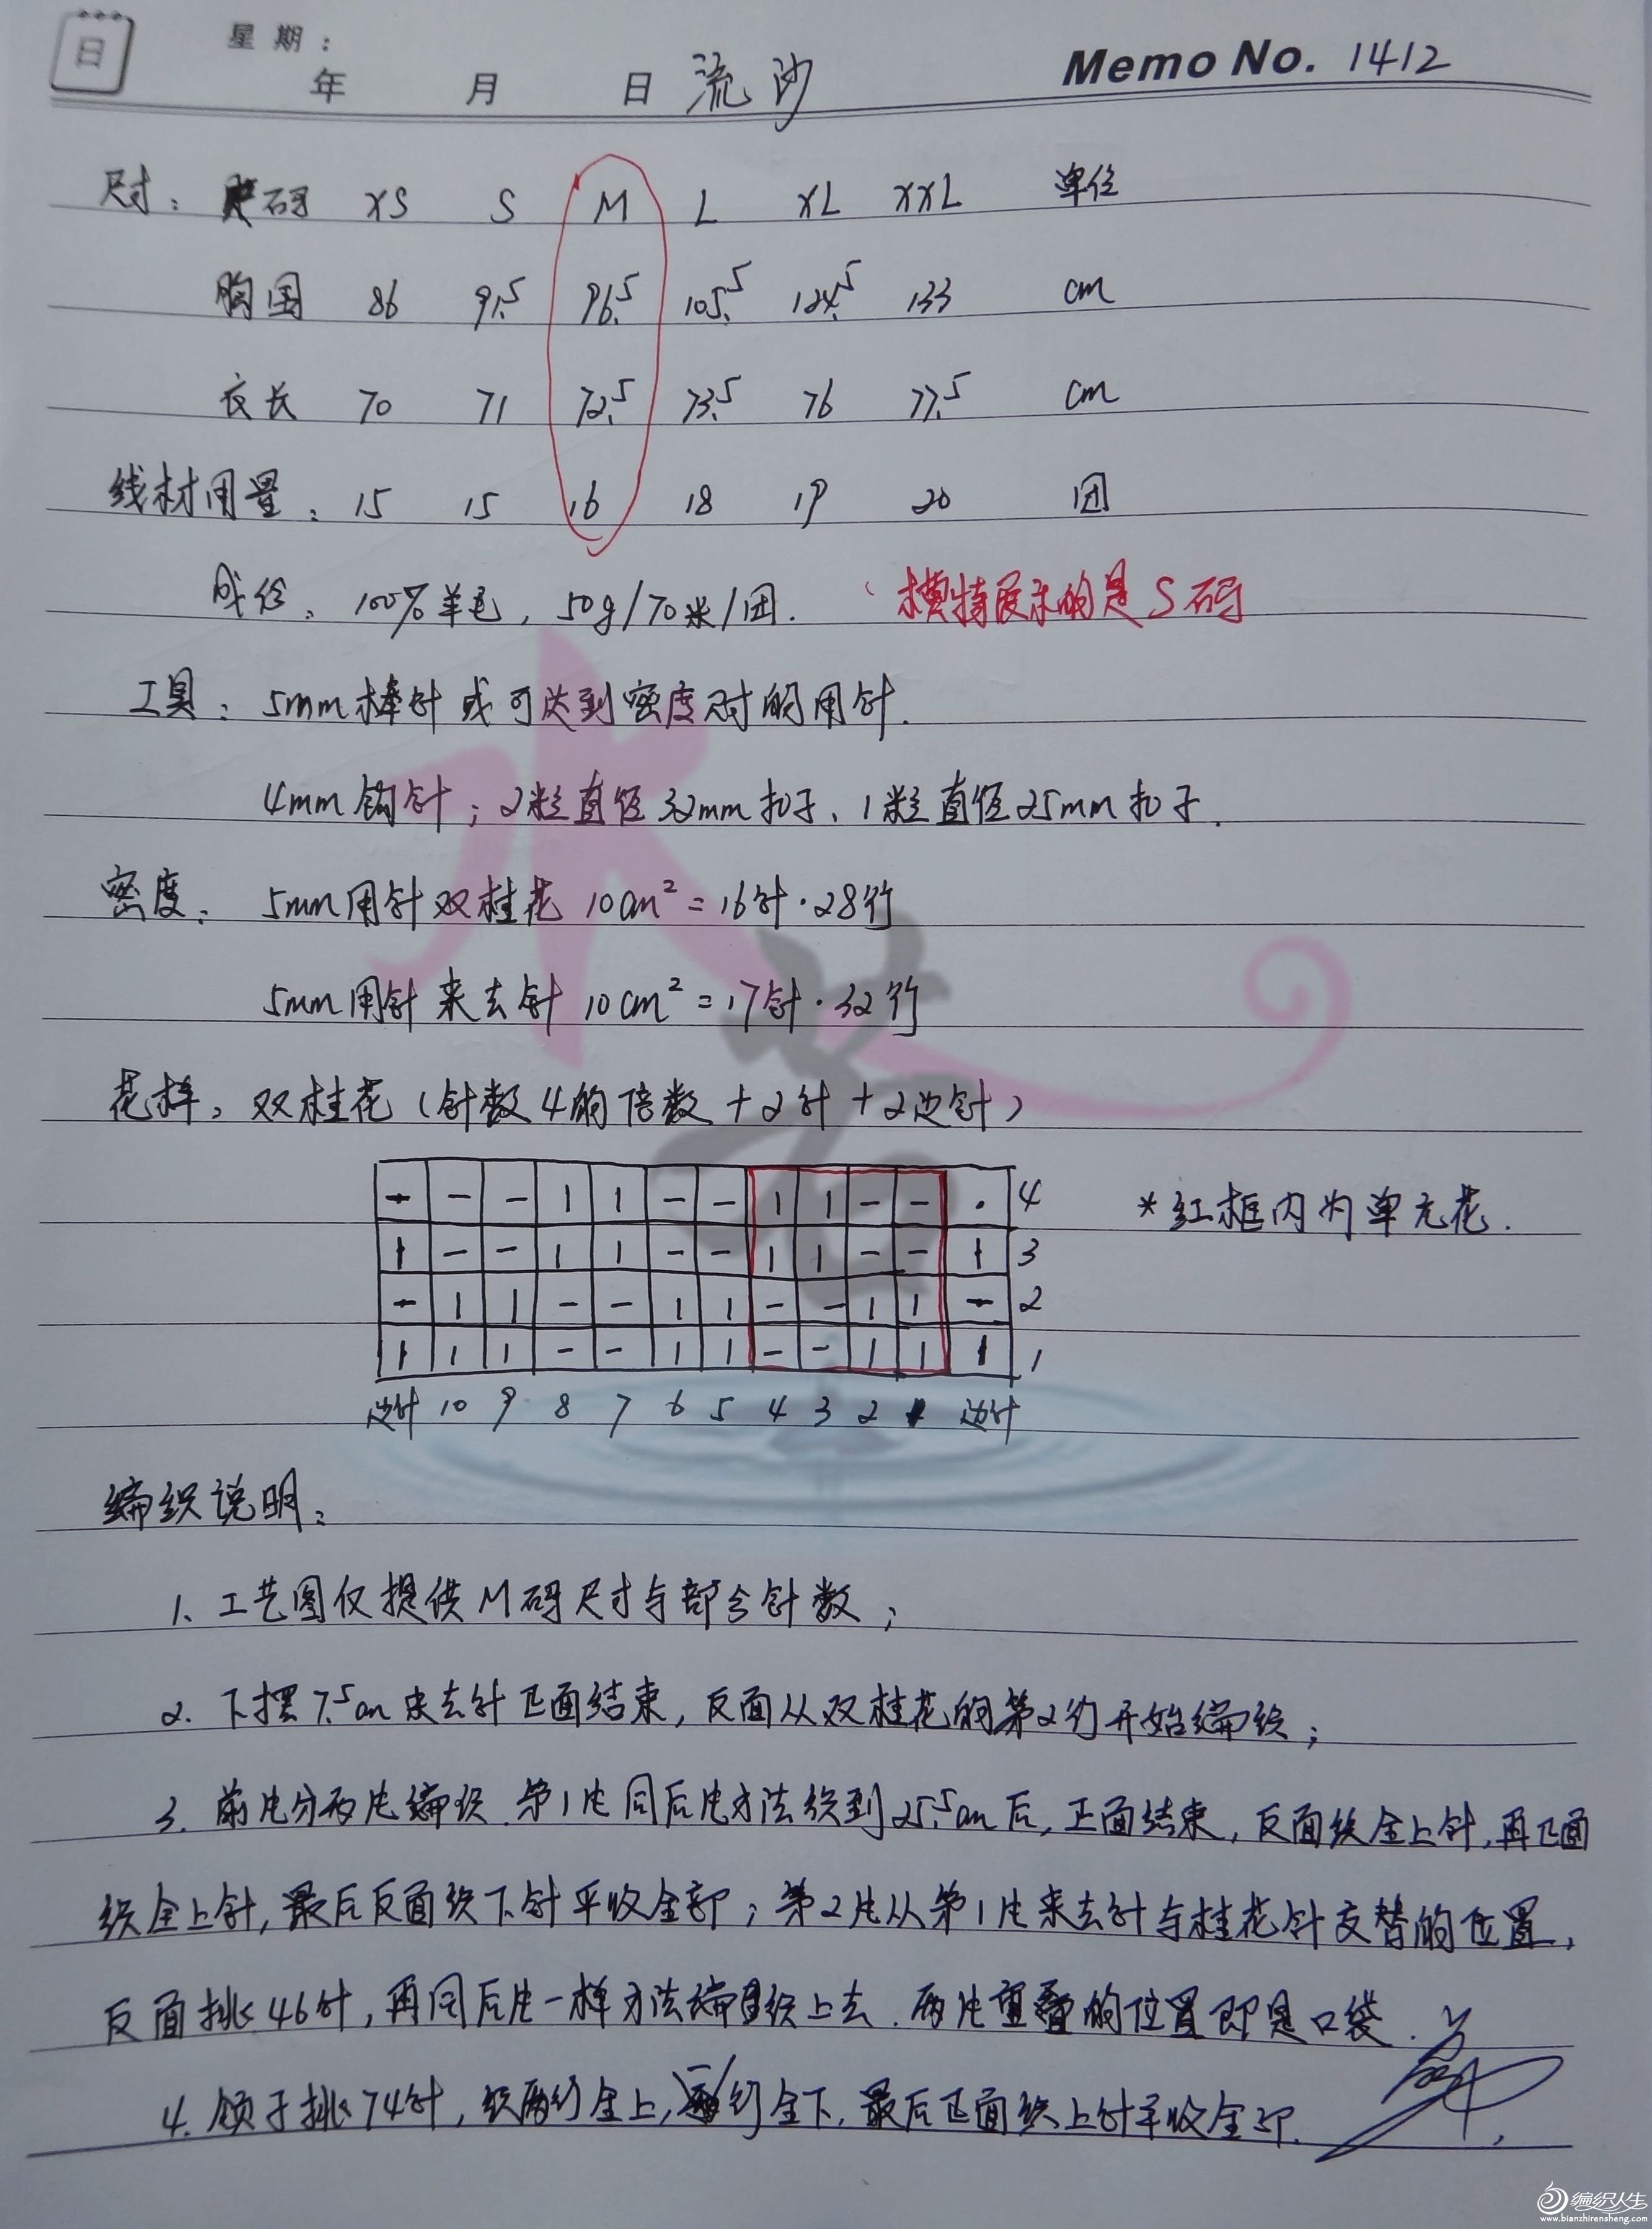 日 星期：
年 月 日 流沙 Memo No. 1412
尺寸： 尺码 XS S M L XL XXL 单位
胸围 86 91.5 96.5 105.5 124.5 133 cm
衣长 70 71 72.5 73.5 76 77.5 cm
线材用量： 15 15 16 18 19 20 团
成份：100%羊毛，50g/70米/团. 模特展示的是S码
工具：5mm棒针或可达到密度对的用针.
4mm钩针；2粒直径32mm扣子、1粒直径25mm扣子.
密度：5mm用针双桂花 10cm²=16针·28行
5mm用针来去针 10cm²=17针·32行
花样：双桂花（针数4的倍数+2针+2边针）
4 *红框内为单元花.
3
2
1
边针 10 9 8 7 6 5 4 3 2 1 边针
编织说明：
1、工艺图仅提供M码尺寸与部分针数；
2. 下摆7.5cm来去针正面结束，反面从双桂花的第2行开始编织；
3. 前片分两片编织.第1片同后片方法织到25.5cm后，正面结束，反面织全上针，再正面
织全上针，最后反面织下针平收全部；第2片从第1片来去针与桂花针交替的位置，
反面挑46针，再同后片一样方法编织上去.两片重叠的位置即是口袋.
4. 领子挑74针，织两行全上，一行全下，最后正面织上针平收全部.
编织人生
www.bianzhirensheng.com
水